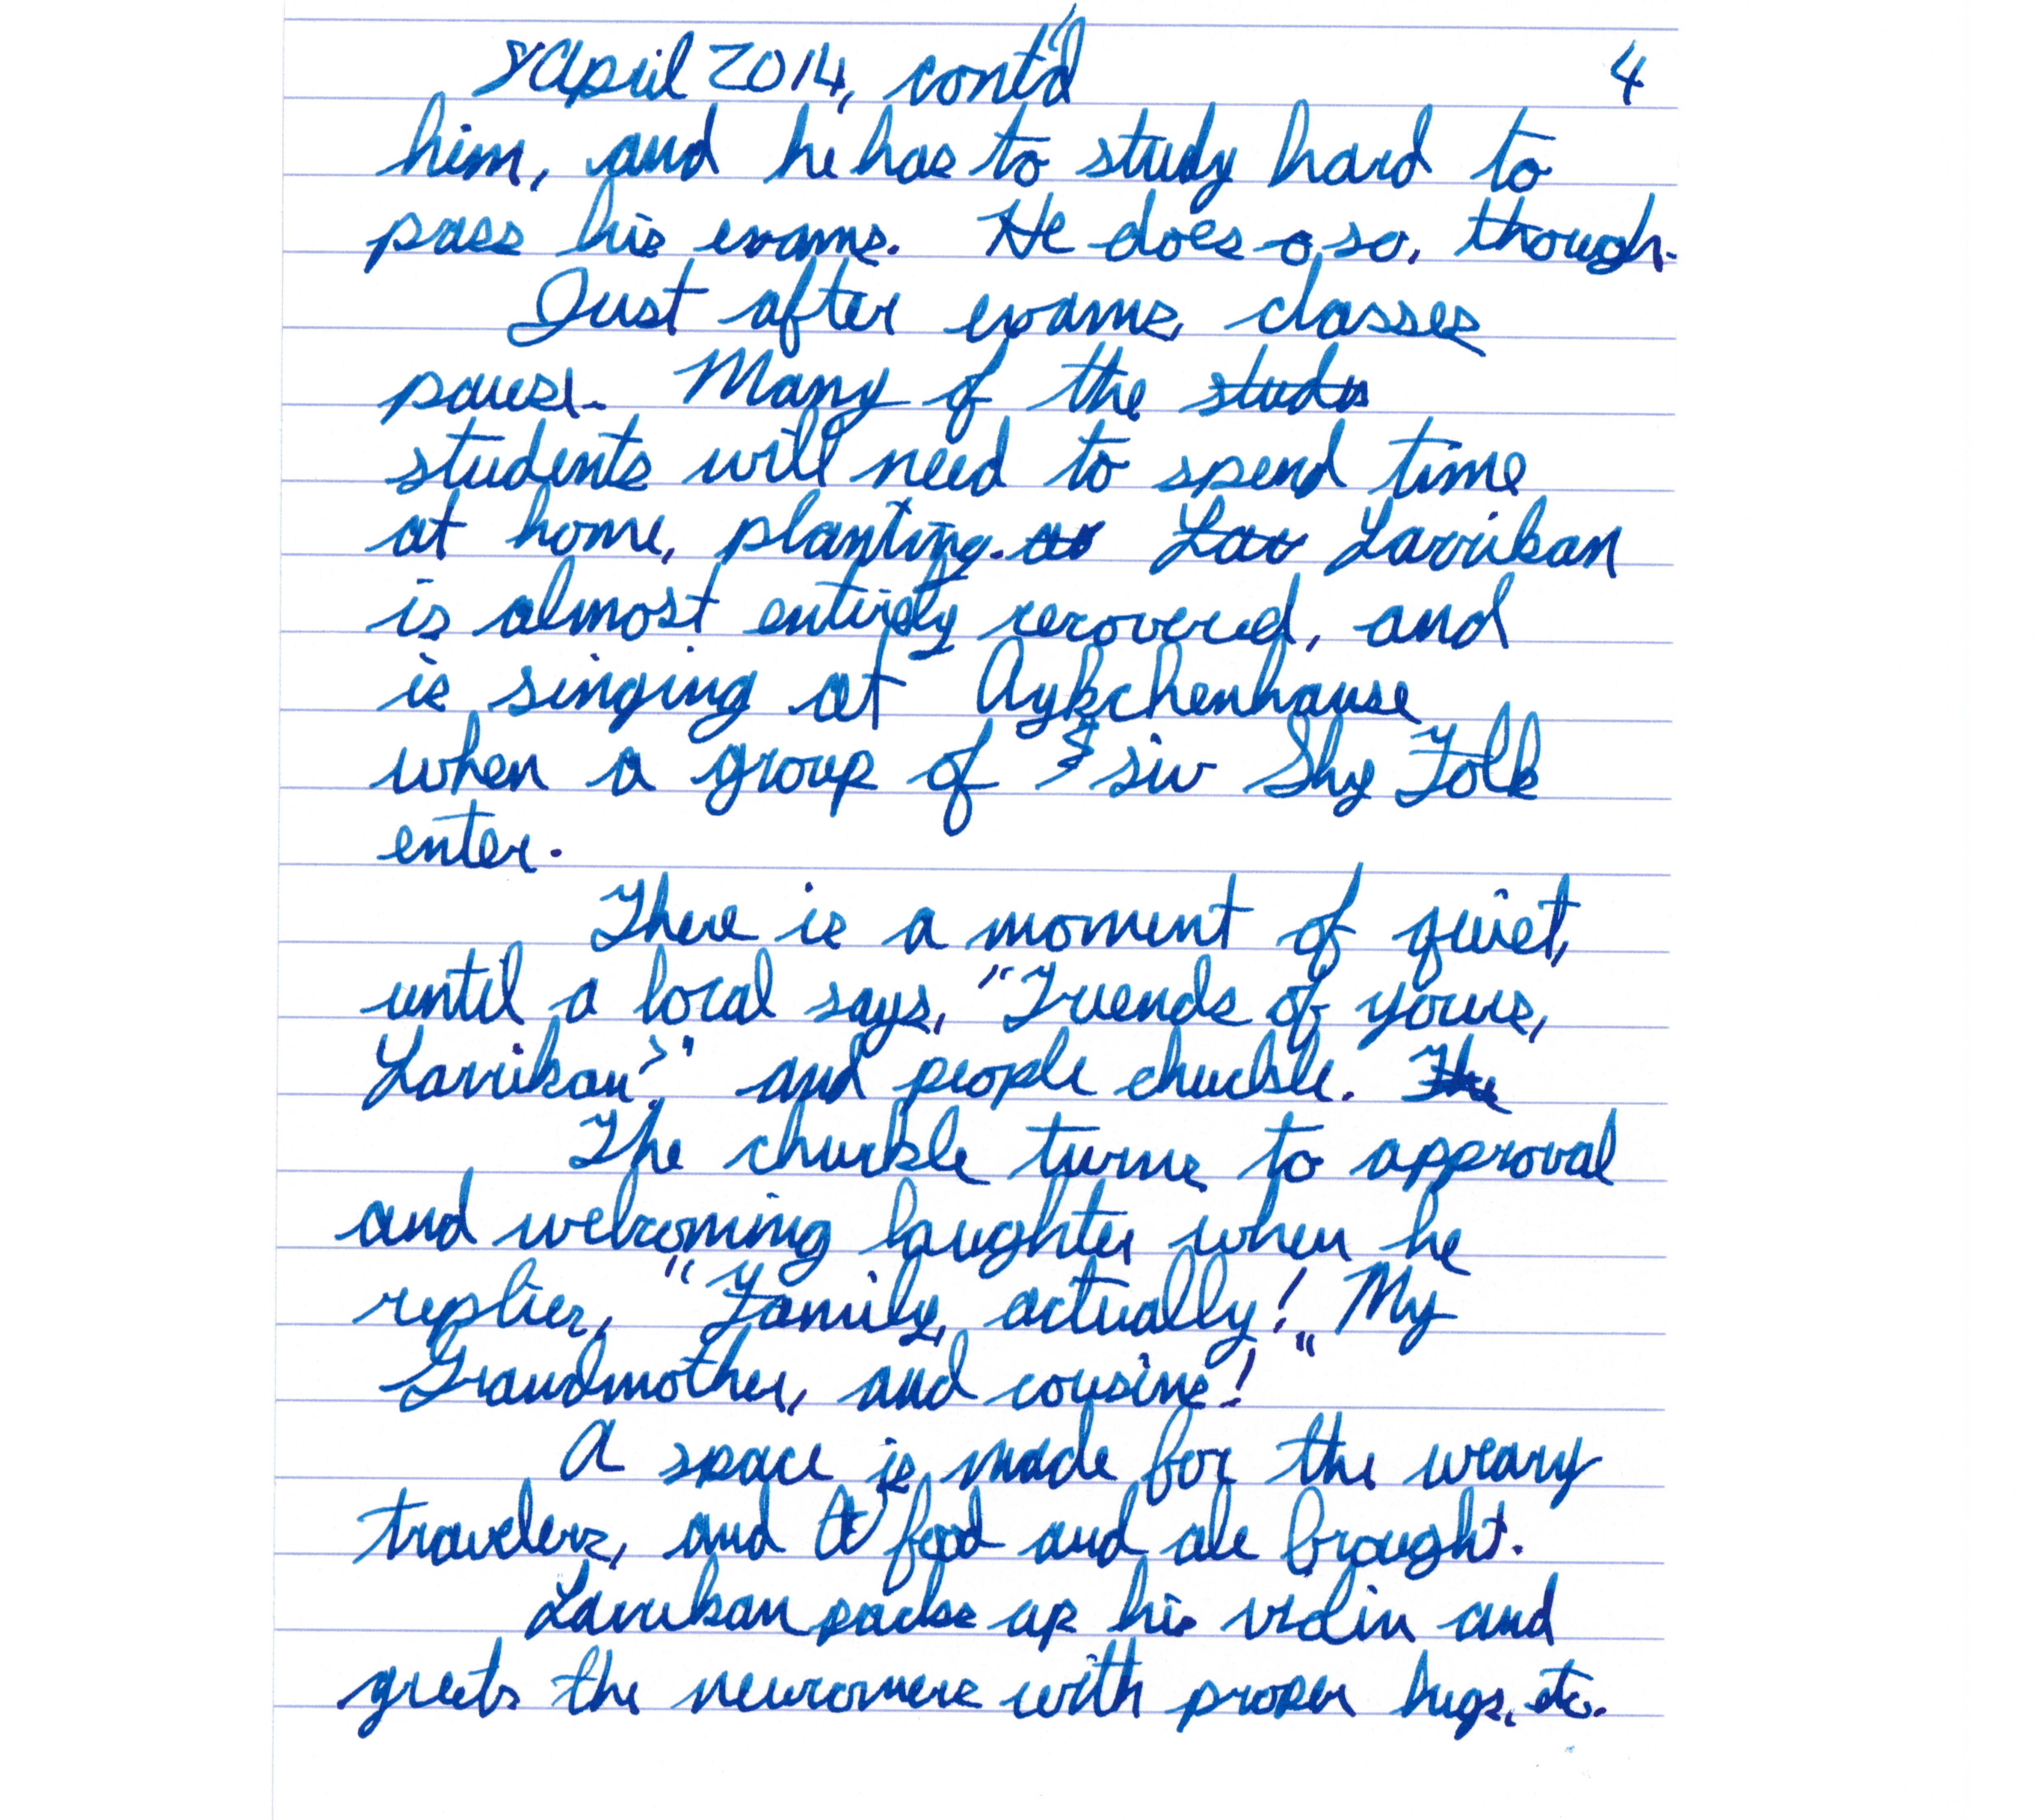 8 April 2014, cont'd 4
him, and he has to study hard to
pass his exams. He does so, though.
Just after exams, classes
pause. Many of the studn
students will need to spend time
at home, planting. Lar Larrikan
is almost entirely recovered, and
is singing at Aykchenhause
when a group of six Shy Folk
enter.
There is a moment of quiet,
until a local says, "Friends of yours,
Larrikan?" and people chuckle. The
The chuckle turns to approval
and welcoming laughter when he
replies, "Family, actually! My
Grandmother, and cousins!"
A space is made for the weary
travelers, and food and ale brought.
Larrikan packs up his violin and
greets the newcomers with proper hugs, etc.